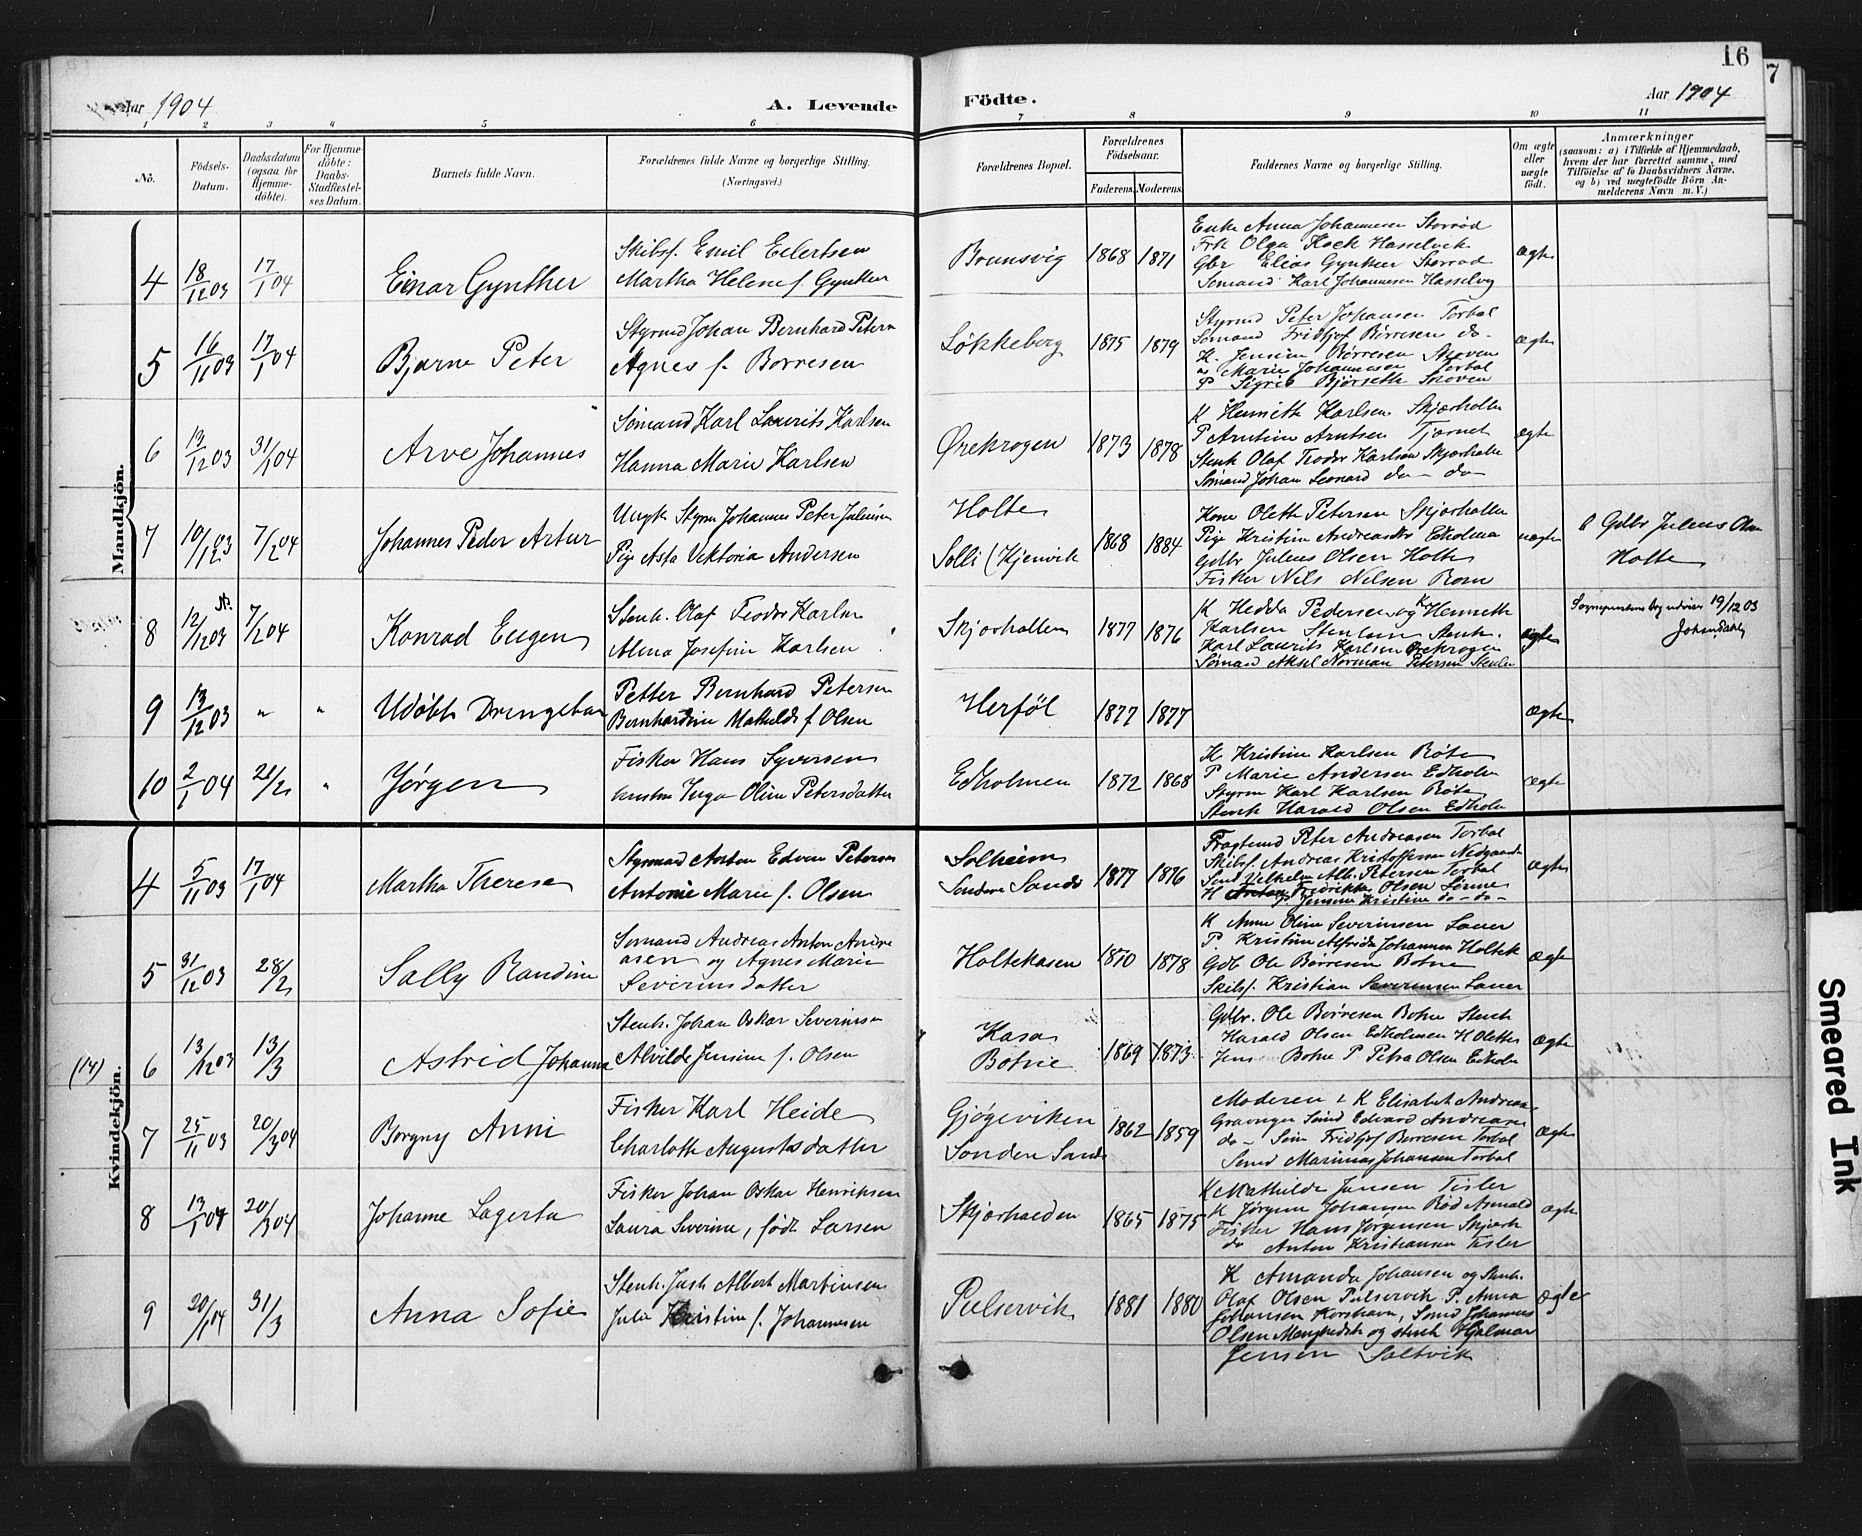 16
7
Aar 1904
A. Levende
Födte.
Aar 1904
1 2 3 4 5 6 7 8 9 10 11
No.
Födsels-Datum.
Daabsdatum (ogsaa for Hjemme-döbte).
For Hjemme-döbte: Daabs-Stadfæstel-ses Datum.
Barnets fulde Navn.
Forældrenes fulde Navne og borgerlige Stilling.
(Næringsvei.)
Forældrenes Bopæl.
Forældrenes Födselsaar.
Faderens. Moderens.
Faddernes Navne og borgerlige Stilling.
Om ægte eller uægte födt.
Anmærkninger
(saasom: a) i Tilfælde af Hjemmedaab, hvem der har forrettet samme, med Tilföielse af to Daabsvidners Navne, og b) ved uægtefödte Börn Anmelderens Navn m. V.)
Mandkjön.
4 18/12 03 17/1 04 Einar Gynther
Skibsf. Emil Eilertsen
Martha Helene f. Gynther
Brunsvig 1868 1871
Enke Anna Johannesen Storrød
Frk Olga Kock Hasselvik
Gbr Elias Gynther Storrød
Sømand Karl Johannesen Hasselvig
ægte
5 16/11 03 17/1 04 Bjarne Peter
Styrmd Johan Bernhard Petersn
Agnes f. Børresen
Løkkeberg 1875 1879
Styrmd Peter Johansen Torbal
Sømand Fridtjof Børresen do.
K. Jensine Børresen Skoven
Marie Johannesen Torbal
P Sigrid Bjørseth Skoven
ægte
6 13/12 03 31/1 04 Arve Johannes
Sømand Karl Laurits Karlsen
Hanna Marie Karlsen
Ørekrogen 1873 1878
K Henriette Karlsen Skjærhalle
P Arntine Arntsen Tjernet
Stenh Olaf Teodor Karlsen Skjærhalle
Sømand Johan Leonard do - do -
ægte
7 10/12 03 7/2 04 Johannes Peder Artur
Ungk. Styrm Johannes Peter Juliussen
Pige Asta Viktoria Andersen
Holte
Solli (Kjenvik 1868 1884
Kone Olette Petersen Skjærhalle
Pige Kristine Andreasdtr Edholma
Gdbr Julius Olsen Holte
Fisker Nils Nilsen Rom
uægte
Gdbr Julius Olsen
Holte
8 12/12 03 7/2 04 Konrad Eugen
Stenh. Olaf Teodor Karlsn
Alma Josefine Karlsen
Skjærhallen 1877 1876
K Hedda Pedersen og K Henriette
Karlsen Stenlien Stenh.
Karl Laurits Karlsen Ørekrogen
Sømand Aksel Norman Petersen Stenlie
ægte
19/12 03
9 13/12 03 " " Udøbt Drengebarn
Petter Bernhard Petersen
Bernhardine Mathilde f Olsen
Herføl 1877 1877
ægte
10 2/1 04 21/2 " Jørgen
Fisker Hans Syversen
Inga Oline Petersdatter
Edholmen 1872 1868
K Kristine Karlsen Røte
P Marie Andersen Edholm
Styrm Karl Karlsen Røte
Stenh Harald Olsen Edholm
ægte
Kvindekjön.
4 5/11 03 17/1 04 Martha Therese
Styrmand Anton Edvin Petersen
Antonie Marie f. Olsen
Solheim
Søndre Sandø 1877 1876
Peter Andreasen Torbal
Skibsf. Andreas Kristoffersen Nedgaarden
Smd Vilhelm Alb. Petersen Torbal
K Fredrikke Olsen
P. Jensine Kristine do - do -
ægte
5 31/12 03 28/2 Sally Randine
Sømand Andreas Anton Andre
asen og Agnes Marie
Severinsdatter
Holtekasen 1870 1878
K Anne Oline Severinsen Lauer
P. Kristine Alfrida Johannesen Holtek
Gdb Ole Børresen Botne
Skibsf. Kristian Severinsen Lauer
ægte
(14) 6 13/12 03 13/3 Astrid Johanna
Stenh. Johan Oskar Severinsen
Alvilde Jensine f. Olsen
Kasa
Botne 1869 1873
Gdbr. Ole Børresen Botne Stenh
Harald Olsen Edholmen K Olette
Jens Botne P Petra Olsen Edholm
ægte
7 25/11 03 20/3 04 Borgny Anni
Fisker Karl Heide
Charlotte Augustsdatter
Gjøgeviken
Søndre Sandø 1862 1859
Moderen & K Elisabet Andreas
Gravninger Smd Edvard Andreasen
do - Søm Fridtjof Børresen Torbal
Smd Marinius Johansen Torbal
ægte
8 13/1 04 20/3 04 Johanne Lagerta
Fisker Johan Oskar Henriksen
Laura Severine, født Larsen
Skjærhalden 1865 1875
K Mathilde Jensen Tisler
K Jørgine Johansen Rød
Fisker Hans Jørgensen Skjærh
do Anton Kristiansen Tisler
ægte
9 20/1 04 31/3 Anna Sofie
Stenh. Albert Martinsen
Julie Kristine f. Johannesen
Pulservik 1881 1880
K Amanda Johansen og Stenh.
Olaf Olsen Pulservik P. Anna
Johansen Korshavn, Smd Johannes
Olsen og stenh Hjalmar
Jensen Saltvik
ægte
Smeared Ink